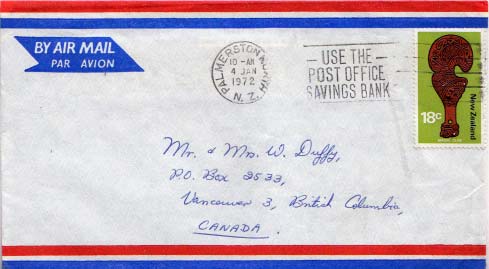 BY AIR MAIL
PAR AVION
PALMERSTON NORTH
10-AM
4 JAN
1972
N.Z.
USE THE
POST OFFICE
SAVINGS BANK
18c
New Zealand
Mr. & Mrs. W. Duffy,
P.O. Box 2533,
Vancouver 3, British Columbia,
CANADA.